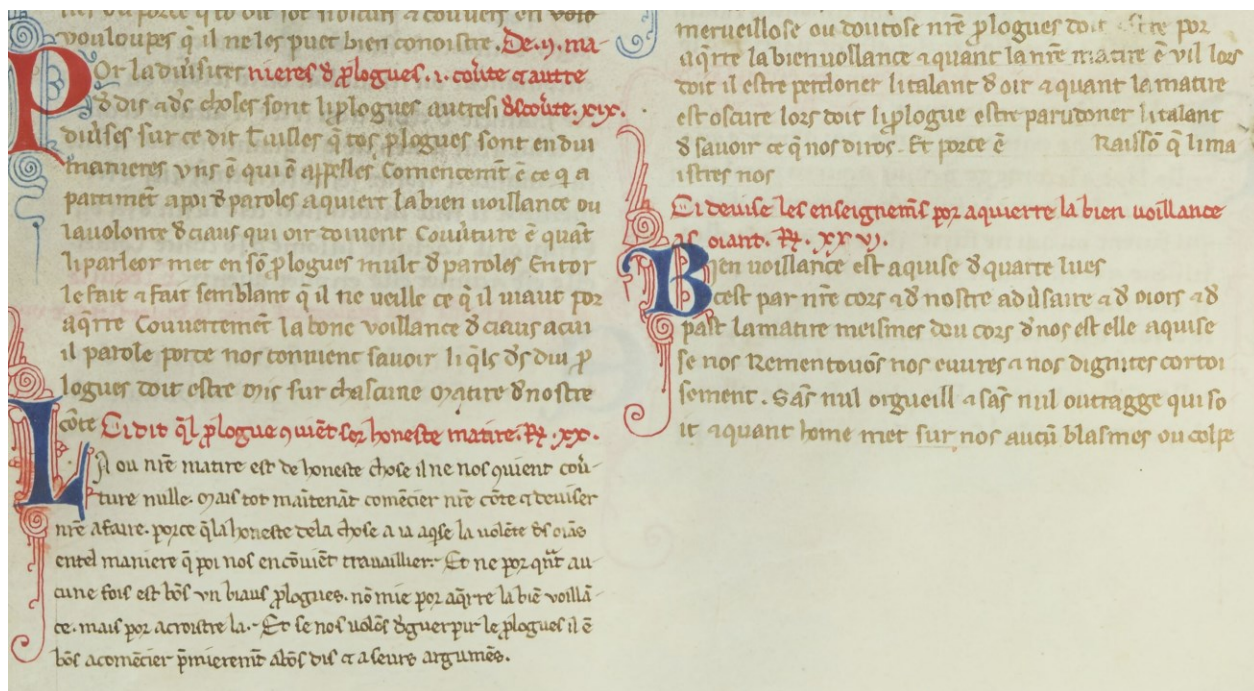 vouloupes q̃ il ne les puet bien conoistre. De .ij. ma-
Por la diũsite nieres đ ꝓlogues. i. coũte ⁊ autre
đ dis ⁊ đs choses sont li ꝓlogues autresi đscoũte. xix.
diũses sur ce dit Tuilles q̃ tos ꝓlogues sont en dui
manieres vns ẽ qui ẽ appelles Comencemt̃ ẽ ce q̃ a
partimẽt a poi đ paroles aquiert la bien uoillance ou
la uolonte đ ciaus qui oir doiuent Couũture ẽ quãt
li parleor met en sõ ꝓlogues mult đ paroles Entor
le fait ⁊ fait semblant q̃ il ne ueille ce q̃ il uiaut por
aq̃rre Couuertemẽt la bone voillance đ ciaus a cui
il parole porce nos conuient sauoir li q̃ls đs dui ꝓ
logues doit estre mis sur chascune matire đ nostre
cõte Ci dit q̃l ꝓlogue ꝯuiẽt sor honeste matire. R̃. xx.
LA ou nr̃e matire est de honeste chose il ne nos quient coũ-
ture nulle. mais tot maĩtenãt comẽcier nr̃e cõte ⁊ deuiser
nr̃e afaire. porce q̃ la honeste de la chose a ia aq̃se la uolẽte đs oiãs
en tel maniere q̃ poi nos en cõuiẽt trauaillier. Et ne por qñt au-
cune fois est bõs vn biaus ꝓlogues. nõ mie por aq̃rre la biẽ voillã-
ce. mais por acroistre la. Et se nos uolõs đguerpir le ꝓlogues il ẽ
bõs a comẽcier p̃mieremt̃ a bõs dis ⁊ a seurs argumẽs.
merueillose ou doutose nr̃e ꝓlogues doit estre por
aq̃rre la bienuollance ⁊ quant la nr̃e matire ẽ vil lors
doit il estre per doner li talant đ oir ⁊ quant la matire
est oscure lors doit li ꝓlogue estre par u doner li talant
đ sauoir ce q̃ nos dirõs. Et porce ẽ Raissõ q̃ li ma
istres nos
Ci deuise les enseignemẽs por aquierre la bien uoillance
as oiant. R̃. xxvj.
Bien uoillance est aquise đ quarte lues
cest par nr̃e cors ⁊ đ nostre aduũsaire ⁊ đ oiors ⁊ đ
par la matire meismes dou cors đ nos est elle aquise
se nos Rementouõs nos euures ⁊ nos dignites cortoi
sement. Sãs nul orgueill ⁊ sãs nul outragge qui so
it ⁊ quant home met sur nos aucũ blasmes ou colpe